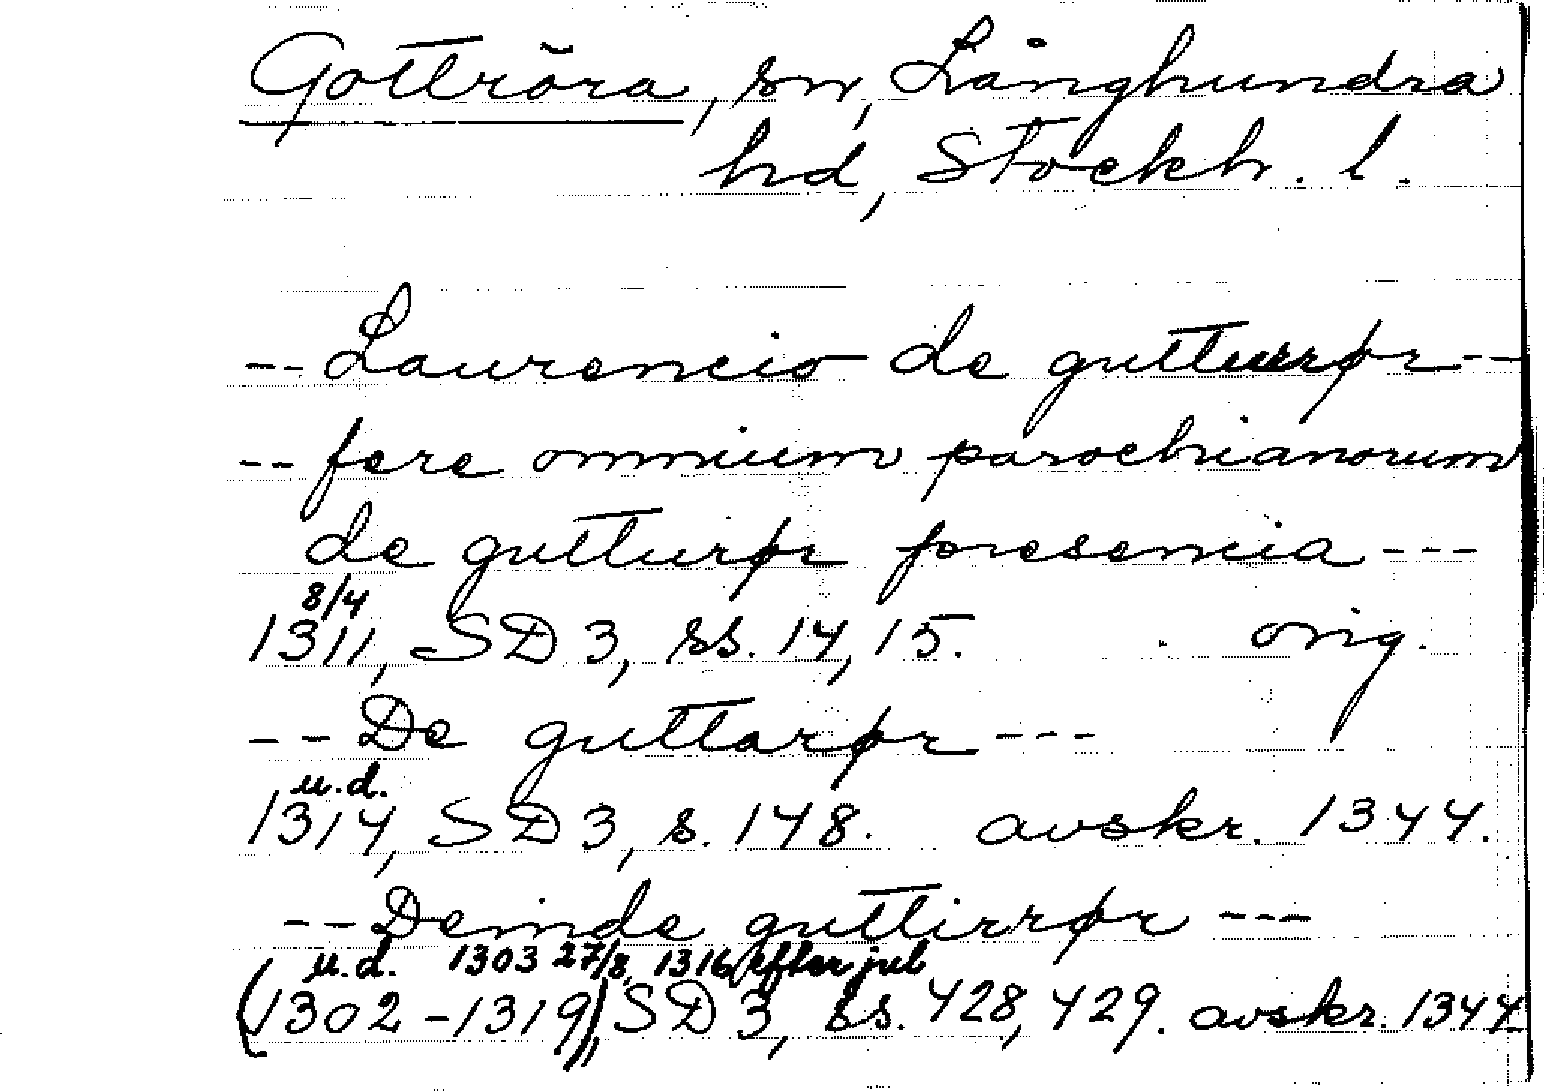 Gottröra, sn, Långhundra
hd, Stockh. l.
-- Laurencio de gutturør --
-- fere omnium parochianorum
de gutturør presencia ---
8/4
1311, SD 3, ss. 14, 15. orig.
-- De guttarør ---
u.d.
1314, SD 3, s. 148. avskr. 1344.
-- Deinde guttirrør ---
u.d. 1303 27/8, 1316 efter jul
(1302-1319), SD 3, ss. 428, 429. avskr. 1344